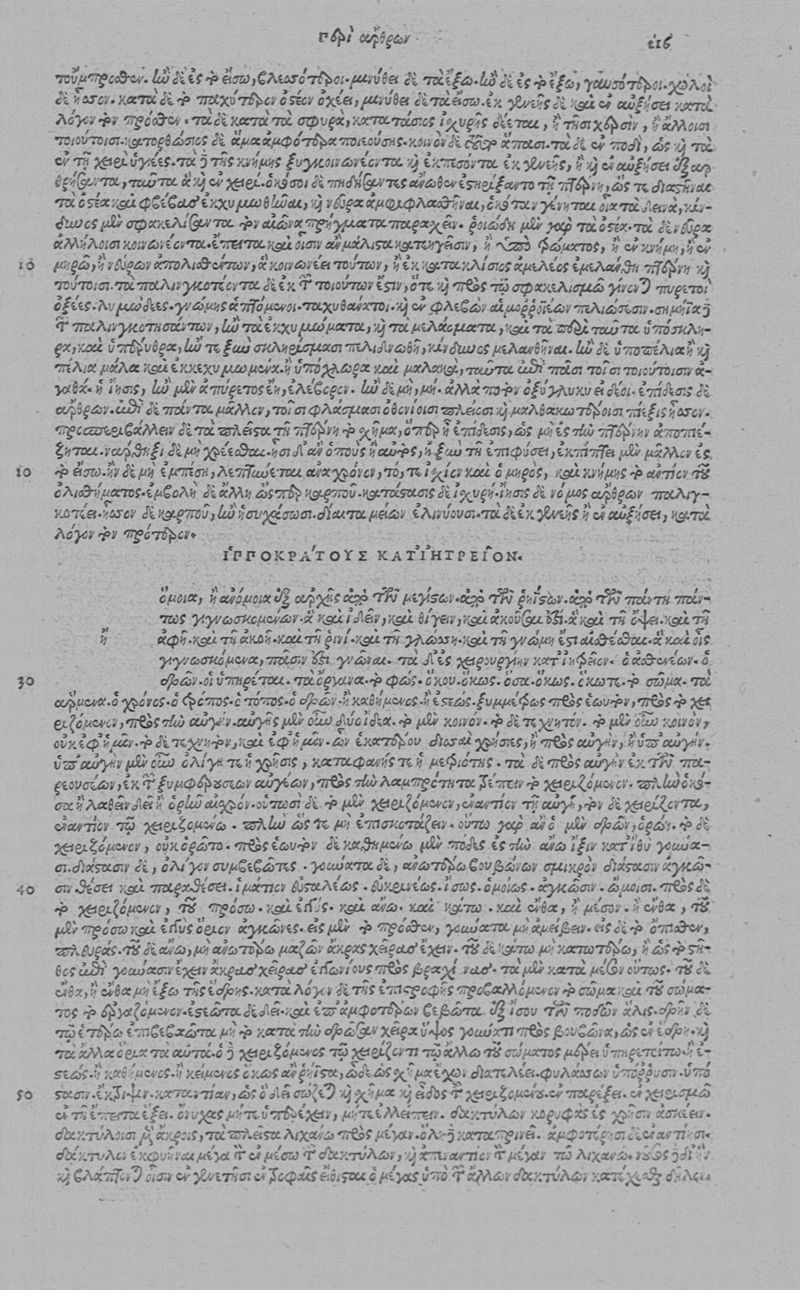 περὶ ἄρθρων 116
τοὔμπροσθεν. ἢν δὲ ἐς τὸ εἴσω, βλαισότεροι. μινύθει δὲ τὰ ἔξω. ἢν δὲ ἐς τὸ ἔξω, γαυσότεροι. χωλοὶ
δὲ ἧσσον. κατὰ δὲ τὸ παχύτερον ὀστέον ὀχέει, μινύθει δὲ τὰ εἴσω. ἐκ γενεῆς δὲ καὶ ἐν αὐξήσει κατὰ
λόγον τὸν πρόσθεν. τὰ δὲ κατὰ τὰ σφυρά, κατατάσιος ἰσχυρῆς δέεται, ἢ τῇσι χερσὶν, ἢ ἄλλοισι
τοιούτοισι. κατορθώσιος δὲ ἅμα ἀμφότερα ποιεούσης. κοινὸν δὲ ἅπασι. τὰ δὲ ἐν ποδὶ, ὡς καὶ τὰ
ἐν τῇ χειρὶ ὑγιέες. τὰ δὲ τῆς κνήμης ξυγκοινωνέοντα καὶ ἐκπεσόντα ἐκ γενεῆς, ἢ καὶ ἐν αὐξήσει ἐξαρ
θρήσαντα, ταῦτα ἃ καὶ ἐν χειρί. ὁκόσοι δὲ πηδήσαντες ἄνωθεν ἐστηρίξαντο τῇ πτέρνῃ, ὥς τε διαστῆναι
τὰ ὀστέα καὶ φλέβας ἐκχυμωθῆναι, καὶ νεῦρα ἀμφιφλασθῆναι, ὁκόταν γένηται οἷα τὰ δεινὰ, κίν-
δυνος μὲν σφακελίσαντα τὸν αἰῶνα πρήγματα παρασχεῖν. ῥοιώδη μὲν γὰρ τὰ ὀστέα. τὰ δὲ νεῦρα
ἀλλήλοισι κοινωνέοντα. ἔπειτα καὶ οἷσιν ἂν μάλιστα κατεαγεῖσιν, ἢ ὑπὸ τρώματος, ἢ ἐν κνήμῃ, ἢ ἐν
10 μηρῷ, ἢ νεύρων ἀπολυθέντων, ἃ κοινωνέει τούτων, ἢ ἐκ κατακλίσιος ἀμελέος ἐμελάνθη πτέρνη καὶ
τούτοισι. τὰ παλιγκοτέοντα δὲ ἐκ τῶν τοιούτων ἐστὶν, ὅτε καὶ πρὸς τῷ σφακελισμῷ γίνονται πυρετοὶ
ὀξέες. λυγμώδεες. γνώμης ἁπτόμενοι. ταχυθάνατοι. καὶ ἐν φλεβῶν αἱμορρόων πελιώσεσιν. σημήϊα δὲ
τῶν παλιγκοτησάντων, ἢν τὰ ἐκχυμώματα, καὶ τὰ μελάσματα, καὶ τὰ περὶ ταῦτα ὑπόσκλη-
ρα, καὶ ὑπέρυθρα, ἢν τε ξὺν σκληρύσμασι πελιδνωθῇ, κίνδυνος μελανθῆναι. ἢν δὲ ὑποπέλια ἢ καὶ
πέλια μάλα καὶ ἐκκεχυμωμένα. ἢ ὑπόχλωρα καὶ μαλακὰ, ταῦτα ἐπὶ πᾶσι τοῖσι τοιούτοισιν ἀ-
γαθά. ἡ ἴησις, ἢν μὲν ἀπύρετος ἔῃ, ἐλλέβορον. ἢν δὲ μὴ, μή. ἀλλὰ ποτὸν ὀξύγλυκυ εἰ δέοι. ἐπίδεσις δὲ
ἄρθρων. ἐπὶ δὲ πάντα μᾶλλον, τοῖσι φλάσμασι ὀθονίοισι πλείοσι καὶ μαλθακωτέροισι πίεξις ἧσσον.
προσπεριβάλλειν δὲ τὰ πλεῖστα τῇ πτέρνῃ. τὸ σχῆμα, ὅπερ ἡ ἐπίδεσις, ὡς μὴ ἐς τὴν πτέρνην ἀποπιέ-
ζηται. νάρθηξι δὲ μὴ χρέεσθαι. ᾗσι δ' ἂν ὁ ποὺς ἢ αὐτὸς, ἢ ξὺν τῇ ἐπιφύσει, ἐκπίπτει μὲν μᾶλλον ἐς
20 τὸ εἴσω. ἢν δὲ μὴ ἐμπέσῃ, λεπτύνεται ἀνὰ χρόνον, τό, τε ἰσχίον καὶ ὁ μηρὸς, καὶ κνήμης τὸ ἀντίον τοῦ
ὀλισθήματος. ἐμβολὴ δὲ ἄλλη ὥσπερ καρποῦ. κατάτασις δὲ ἰσχυρή. ἴησις δὲ νόμος ἄρθρων. παλιγ-
κοτέει. ἧσσον δὲ καρποῦ, ἢν ἡσυχάσωσι. δίαιτα μείων ἐλινύουσι. τὰ δὲ ἐκ γενεῆς ἢ ἐν αὐξήσει, κατὰ
λόγον τὸν πρότερον.
ΙΠΠΟΚΡΑΤΟΥΣ ΚΑΤ' ΙΗΤΡΕΙΟΝ.
ὅμοια, ἢ ἀνόμοια ἐξ ἀρχῆς ἀπὸ τῶν μεγίστων. ἀπὸ τῶν ῥηΐστων. ἀπὸ τῶν πάντη πάν-
τως γιγνωσκομένων. ἃ καὶ ἰδεῖν, καὶ θίγειν, καὶ ἀκοῦσαι ἐστί. ἃ καὶ τῇ ὄψει. καὶ τῇ
ἢ ἀφῇ. καὶ τῇ ἀκοῇ. καὶ τῇ ῥινὶ. καὶ τῇ γλώσσῃ. καὶ τῇ γνώμῃ ἐστὶ αἰσθέσθαι. ἃ καὶ οἷς
γιγνωσκόμενα, πᾶσιν ἐστὶ γνῶναι. τὰ δ' ἐς χειρουργίην κατ' ἰητρεῖον. ὁ ἀσθενέων. ὁ
30 δρῶν. οἱ ὑπηρέται. τὰ ὄργανα. τὸ φῶς. ὅκου. ὅκως. ὅσα. ὅκως. ὅκωτε. τὸ σῶμα. τὰ
ἄρμενα. ὁ χρόνος. ὁ τρόπος. ὁ τόπος. ὁ δρῶν. ἢ καθήμενος. ἢ ἑστεώς. ξυμμέτρως πρὸς ἑωυτὸν, πρὸς τὸ χει
ριζόμενον, πρὸς τὴν αὐγήν. αὐγῆς μὲν οὖν δύο εἴδεα. τὸ μὲν κοινόν. τὸ δὲ τεχνητόν. τὸ μὲν οὖν κοινὸν,
οὐκ ἐφ' ἡμῖν. τὸ δὲ τεχνητὸν, καὶ ἐφ' ἡμῖν. ὧν ἑκατέρου δισσαὶ χρήσιες, ἢ πρὸς αὐγὴν, ἢ ὑπ' αὐγήν.
ὑπ' αὐγὴν μὲν οὖν ὀλίγη τε ἡ χρῆσις, καταφανής τε ἡ μετριότης. τὰ δὲ πρὸς αὐγὴν ἐκ τῶν πα-
ρεουσέων, ἐκ τῶν ξυμφερουσέων αὐγέων, πρὸς τὴν λαμπρότητα τρέπειν τὸ χειριζόμενον. πλὴν ὁκό-
σα ἢ λαθεῖν δεῖ ἢ ὁρῆν αἰσχρόν. οὕτωσι δὲ τὸ μὲν χειριζόμενον, ἐναντίον τῇ αὐγῇ, τὸν δὲ χειρίζοντα,
ἐναντίον τῷ χειριζομένῳ. πλὴν ὥς τε μὴ ἐπισκοτάζειν. οὕτω γὰρ ἂν ὁ μὲν δρῶν, ὁρῴη. τὸ δὲ
χειριζόμενον, οὐκ ὁρῷτο. πρὸς ἑωυτὸν δὲ καθημένῳ μὲν πόδες ἐς τὴν ἄνω ἴξιν κατ' ἰθὺ γούνα-
σι. διάστασιν δὲ, ὀλίγον συμβεβῶτες. γούνατα δὲ, ἀνωτέρω βουβώνων σμικρόν διάστασιν ἀγκώ-
40 νων θέσει καὶ παραθέσει. ἱμάτιον εὐσταλέως. εὐκρινέως. ἴσως. ὁμοίως. ἀγκῶσιν. ὤμοισι. πρὸς δὲ
τὸ χειριζόμενον, τοῦ πρόσω. καὶ ἐγγύς. καὶ ἄνω. καὶ κάτω. καὶ ἔνθα, ἢ μέσον. ἢ ἔνθα, τοῦ
μὲν πρόσω καὶ ἐγγὺς ὅριον ἀγκῶνες. εἰς μὲν τὸ πρόσθεν, γούνατα μὴ ἀμείβειν. εἰς δὲ τὸ ὄπισθεν,
πλευράς. τοῦ δὲ ἄνω, μὴ ἀνωτέρω μαζῶν ἄκρας χεῖρας ἔχειν. τοῦ δὲ κάτω μὴ κατωτέρω, ἢ ὡς τὸ στῆ-
θος ἐπὶ γούνασιν ἔχειν ἄκρας χεῖρας ἐγγωνίους πρὸς βραχίονας. τὰ μὲν κατὰ μέσον οὕτως. τοῦ δὲ
ἔνθα, ἢ ἔνθα μὴ ἔξω τῆς ἕδρης. κατὰ λόγον δὲ τῆς ἐπιστροφῆς προβαλλόμενον τὸ σῶμα καὶ τοῦ σώμα-
τος τὸ ἐργαζόμενον. ἑστεῶτα δὲ δεῖ. καὶ ἐπ' ἀμφοτέρων βεβῶτα ἐξ ἴσου τῶν ποδῶν ἅλις. δρῆν δὲ
τῷ ἑτέρῳ ἐπιβεβῶτα μὴ τὸ κατὰ τὴν δρῶσαν χεῖρα ὕψος γούνατι πρὸς βουβῶνα, ὡς ἐν ἕδρῃ. καὶ
τὰ ἄλλα ὅρια τὰ αὐτά. ὁ δὲ χειριζόμενος τῷ χειρίζοντι τῷ ἄλλῳ τοῦ σώματος μέρει ὑπηρετείτω ἢ ἑ-
στεώς. ἢ καθήμενος. ἢ κείμενος ὅκως ἂν ῥήϊστα, ὃ δεῖ ὡς σχῆμα ἔχων διατελέει. φυλάσσων ὑπόρρυσιν. ὑπό
50 στασιν. ἔκτρεψιν. καταντίαν, ὡς ὃ δεῖ σώζηται καὶ σχῆμα καὶ εἶδος τοῦ χειριζομένου. ἐν παρέξει. ἐν χειρισμῷ
ἐν τῇ ἔπειτα ἕξει. ὄνυχας μήτε ὑπερέχειν, μήτε ἐλλείπειν. δακτύλων κορυφὰς ἐς χρῆσιν ἀσκέειν.
δακτύλοισι μὲν ἄκροις, τὰ πλεῖστα λιχανῷ πρὸς μέγαν. ὅλῃ καταπρηνεῖ. ἀμφοτέρῃσι δὲ ἐναντίῃσι.
δακτύλων εὐφυΐη. μέγα τὸ ἐν μέσῳ τῶν δακτύλων, καὶ ἀπεναντίον τὸν μέγαν τῷ λιχανῷ. νοῦσος δὲ δι' ἣν
καὶ βλάπτονται οἷσιν ἐν γενετῇσι ἐν τροφαῖς εἴθισται ὁ μέγας ὑπὸ τῶν ἄλλων δακτύλων κατέχεσθαι δῆλον